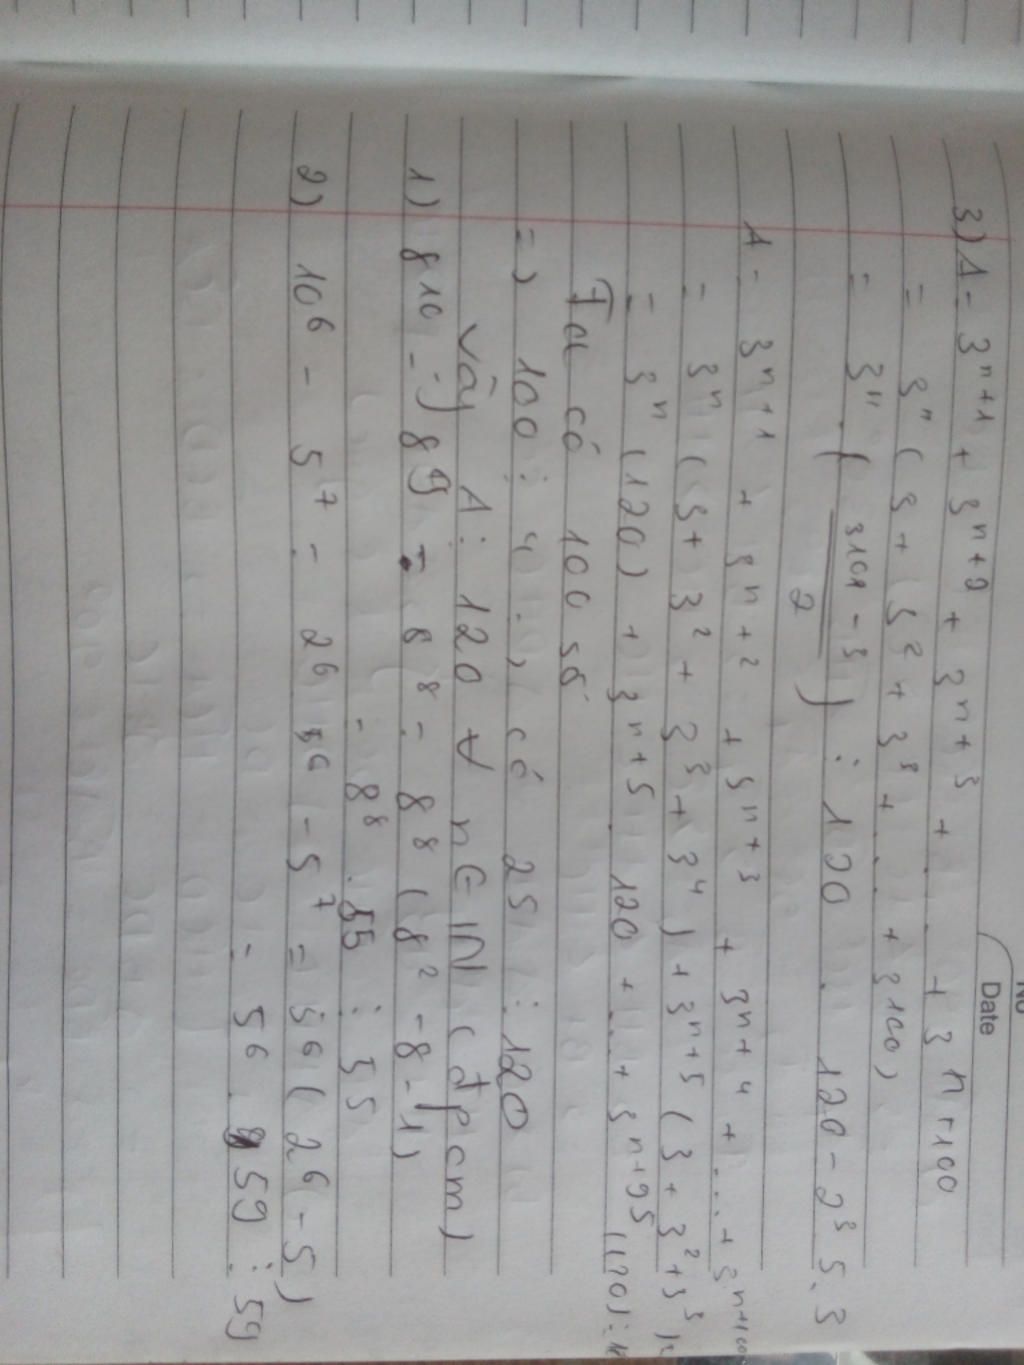 No
Date
3) A = 3ⁿ⁺¹ + 3ⁿ⁺² + 3ⁿ⁺³ + ... + 3ⁿ⁺¹⁰⁰
= 3ⁿ (3 + 3² + 3³ + ... + 3¹⁰⁰)
= 3ⁿ . ( (3¹⁰¹ - 3) / 2 ) ⋮ 120 120 - 2³ 5. 3
A = 3ⁿ⁺¹ + 3ⁿ⁺² + 3ⁿ⁺³ + 3ⁿ⁺⁴ + ... + 3ⁿ⁺¹⁰⁰
= 3ⁿ (3 + 3² + 3³ + 3⁴) + 3ⁿ⁺⁵ (3 + 3² + 3³
= 3ⁿ (120) + 3ⁿ⁺⁵ . 120 + ... + 3ⁿ⁺⁹⁵ (120) ⋮
Ta có 100 số
=) 100 : 4 , có 25 ⋮ 120
Vậy A ⋮ 120 ∀ n ∈ ℕ (đpcm)
1) 8¹⁰ - 8⁹ - 8⁸ = 8⁸ (8² - 8 - 1)
= 8⁸ . 55 ⋮ 55
2) 10⁶ - 5⁷ = 2⁶ 5⁶ - 5⁷ = 5⁶ (2⁶ - 5)
= 5⁶ . 59 ⋮ 59